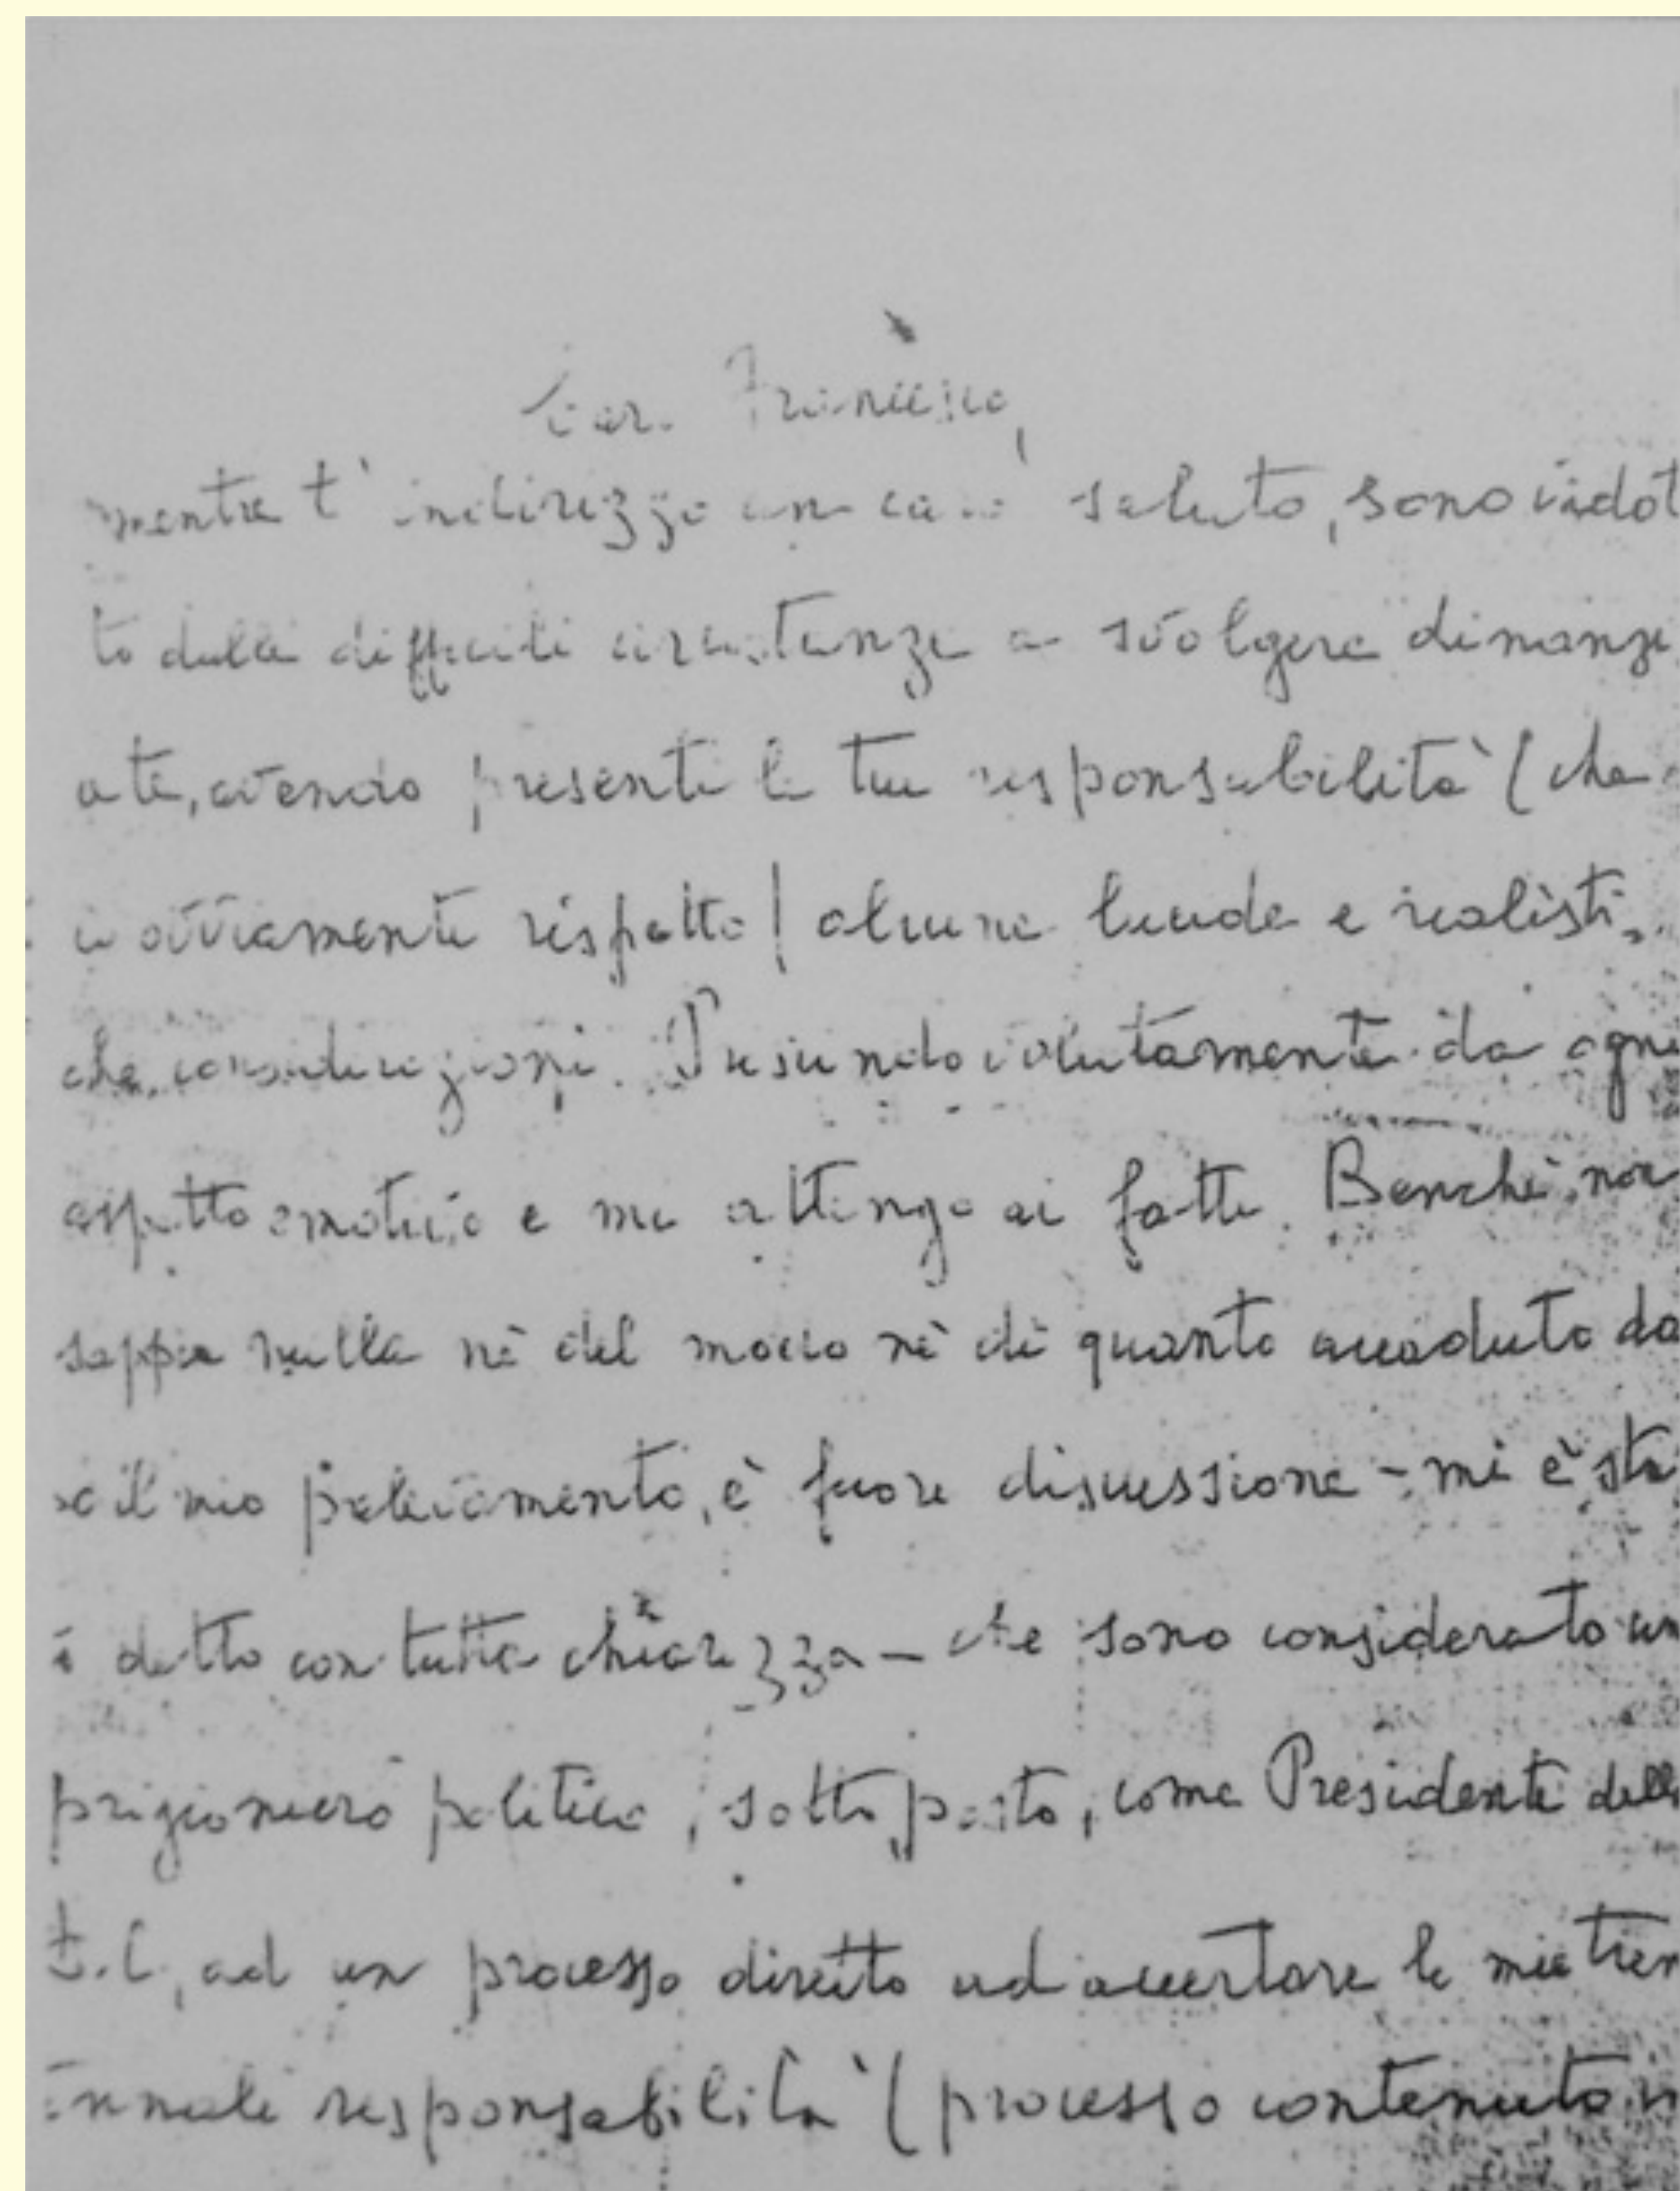 Caro Francesco,
mentre t'indirizzo un caro saluto, sono indot
to dalle difficili circostanze a svolgere dinanzi
a te, avendo presenti le tue responsabilità (che
io ovviamente rispetto) alcune lucide e realisti
che considerazioni. Prescindo volutamente da ogni
aspetto emotivo e mi attengo ai fatti. Benché non
sappia nulla né del modo né di quanto accaduto do
po il mio prelevamento, è fuori discussione - mi è sta
to detto con tutta chiarezza - che sono considerato un
prigioniero politico, sottoposto, come Presidente della
D.C., ad un processo diretto ad accertare le mie trien
tennali responsabilità (processo contenuto in